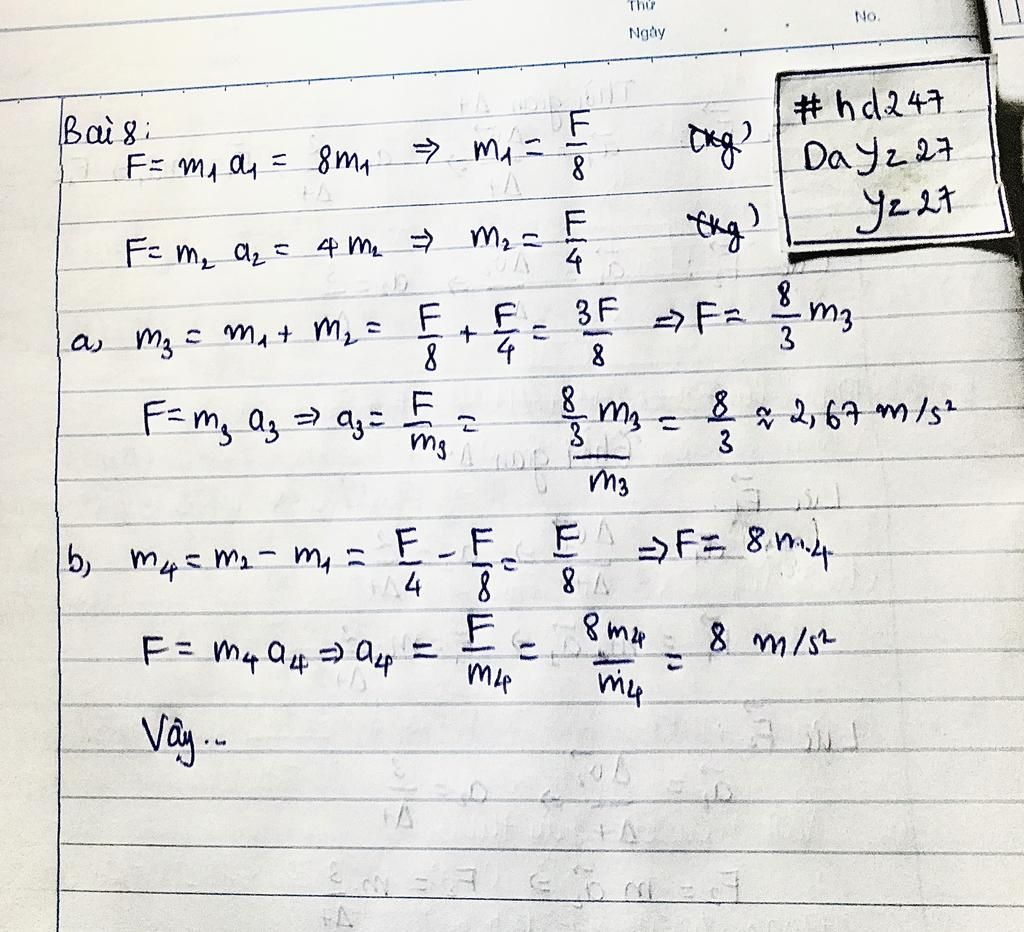 Thứ
Ngày
No.
#hd247
Dayz27
yz27
Bài 8:
F = m₁ a₁ = 8m₁ ⇒ m₁ = F/8 (kg)
F = m₂ a₂ = 4m₂ ⇒ m₂ = F/4 (kg)
a, m₃ = m₁ + m₂ = F/8 + F/4 = 3F/8 ⇒ F = 8/3 m₃
F = m₃ a₃ ⇒ a₃ = F/m₃ = (8/3 m₃)/m₃ = 8/3 ≈ 2,67 m/s²
b, m₄ = m₂ - m₁ = F/4 - F/8 = F/8 ⇒ F = 8.m₄
F = m₄ a₄ ⇒ a₄ = F/m₄ = 8m₄/m₄ = 8 m/s²
Vậy...